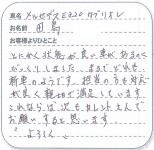 車名 メルセデス E320 カブリオレ
お名前 田島
お客様よりひとこと
とにかく状態が良い車があるので
びっくりしました。まるでどれも
新車のようです。担当の方も対応
が良く親切で満足しています。
これならば次も
お願いすると思います
よろしく